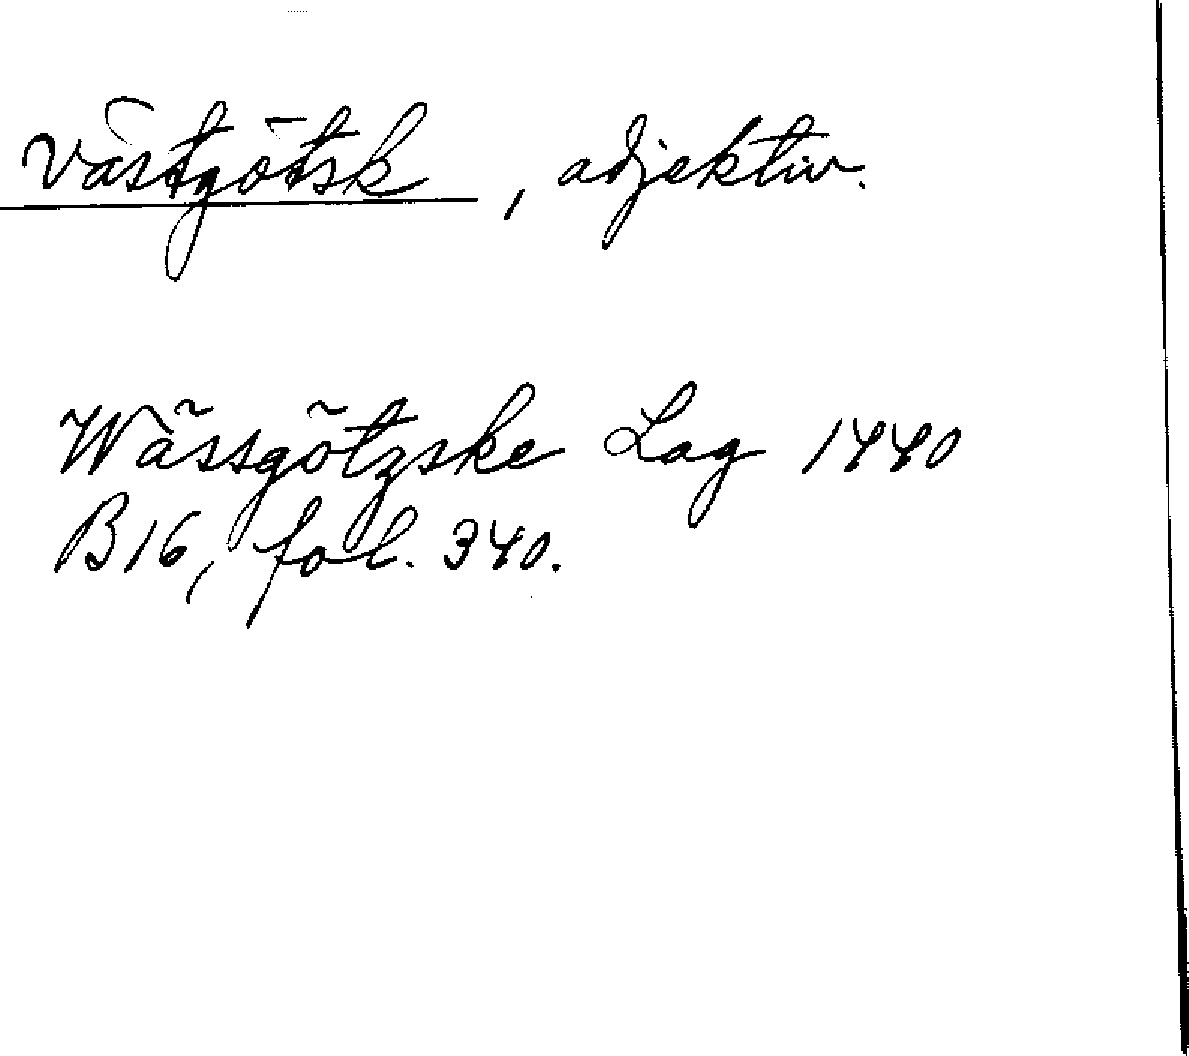 västgötsk, adjektiv.
Wässgötzske Lag 1440
B16, fol. 340.